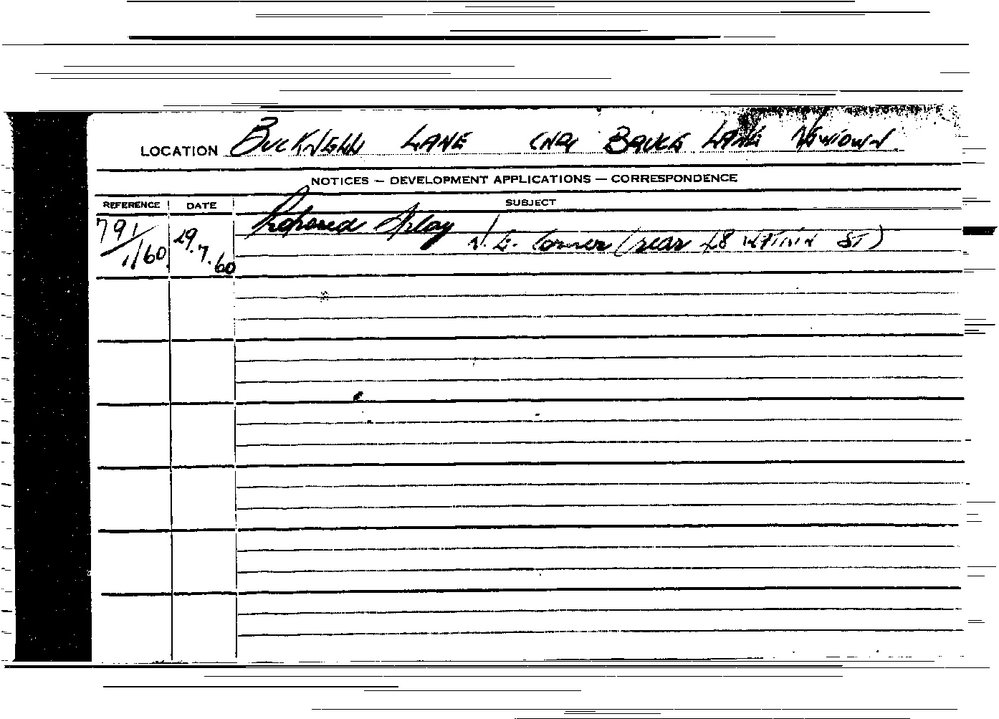 LOCATION BUCKNELL LANE CNR BRUCE LANE NEWTOWN
NOTICES — DEVELOPMENT APPLICATIONS — CORRESPONDENCE
REFERENCE DATE SUBJECT
791/1/60 29.7.60 Proposed Splay N.E. Corner (rear 48 ST)